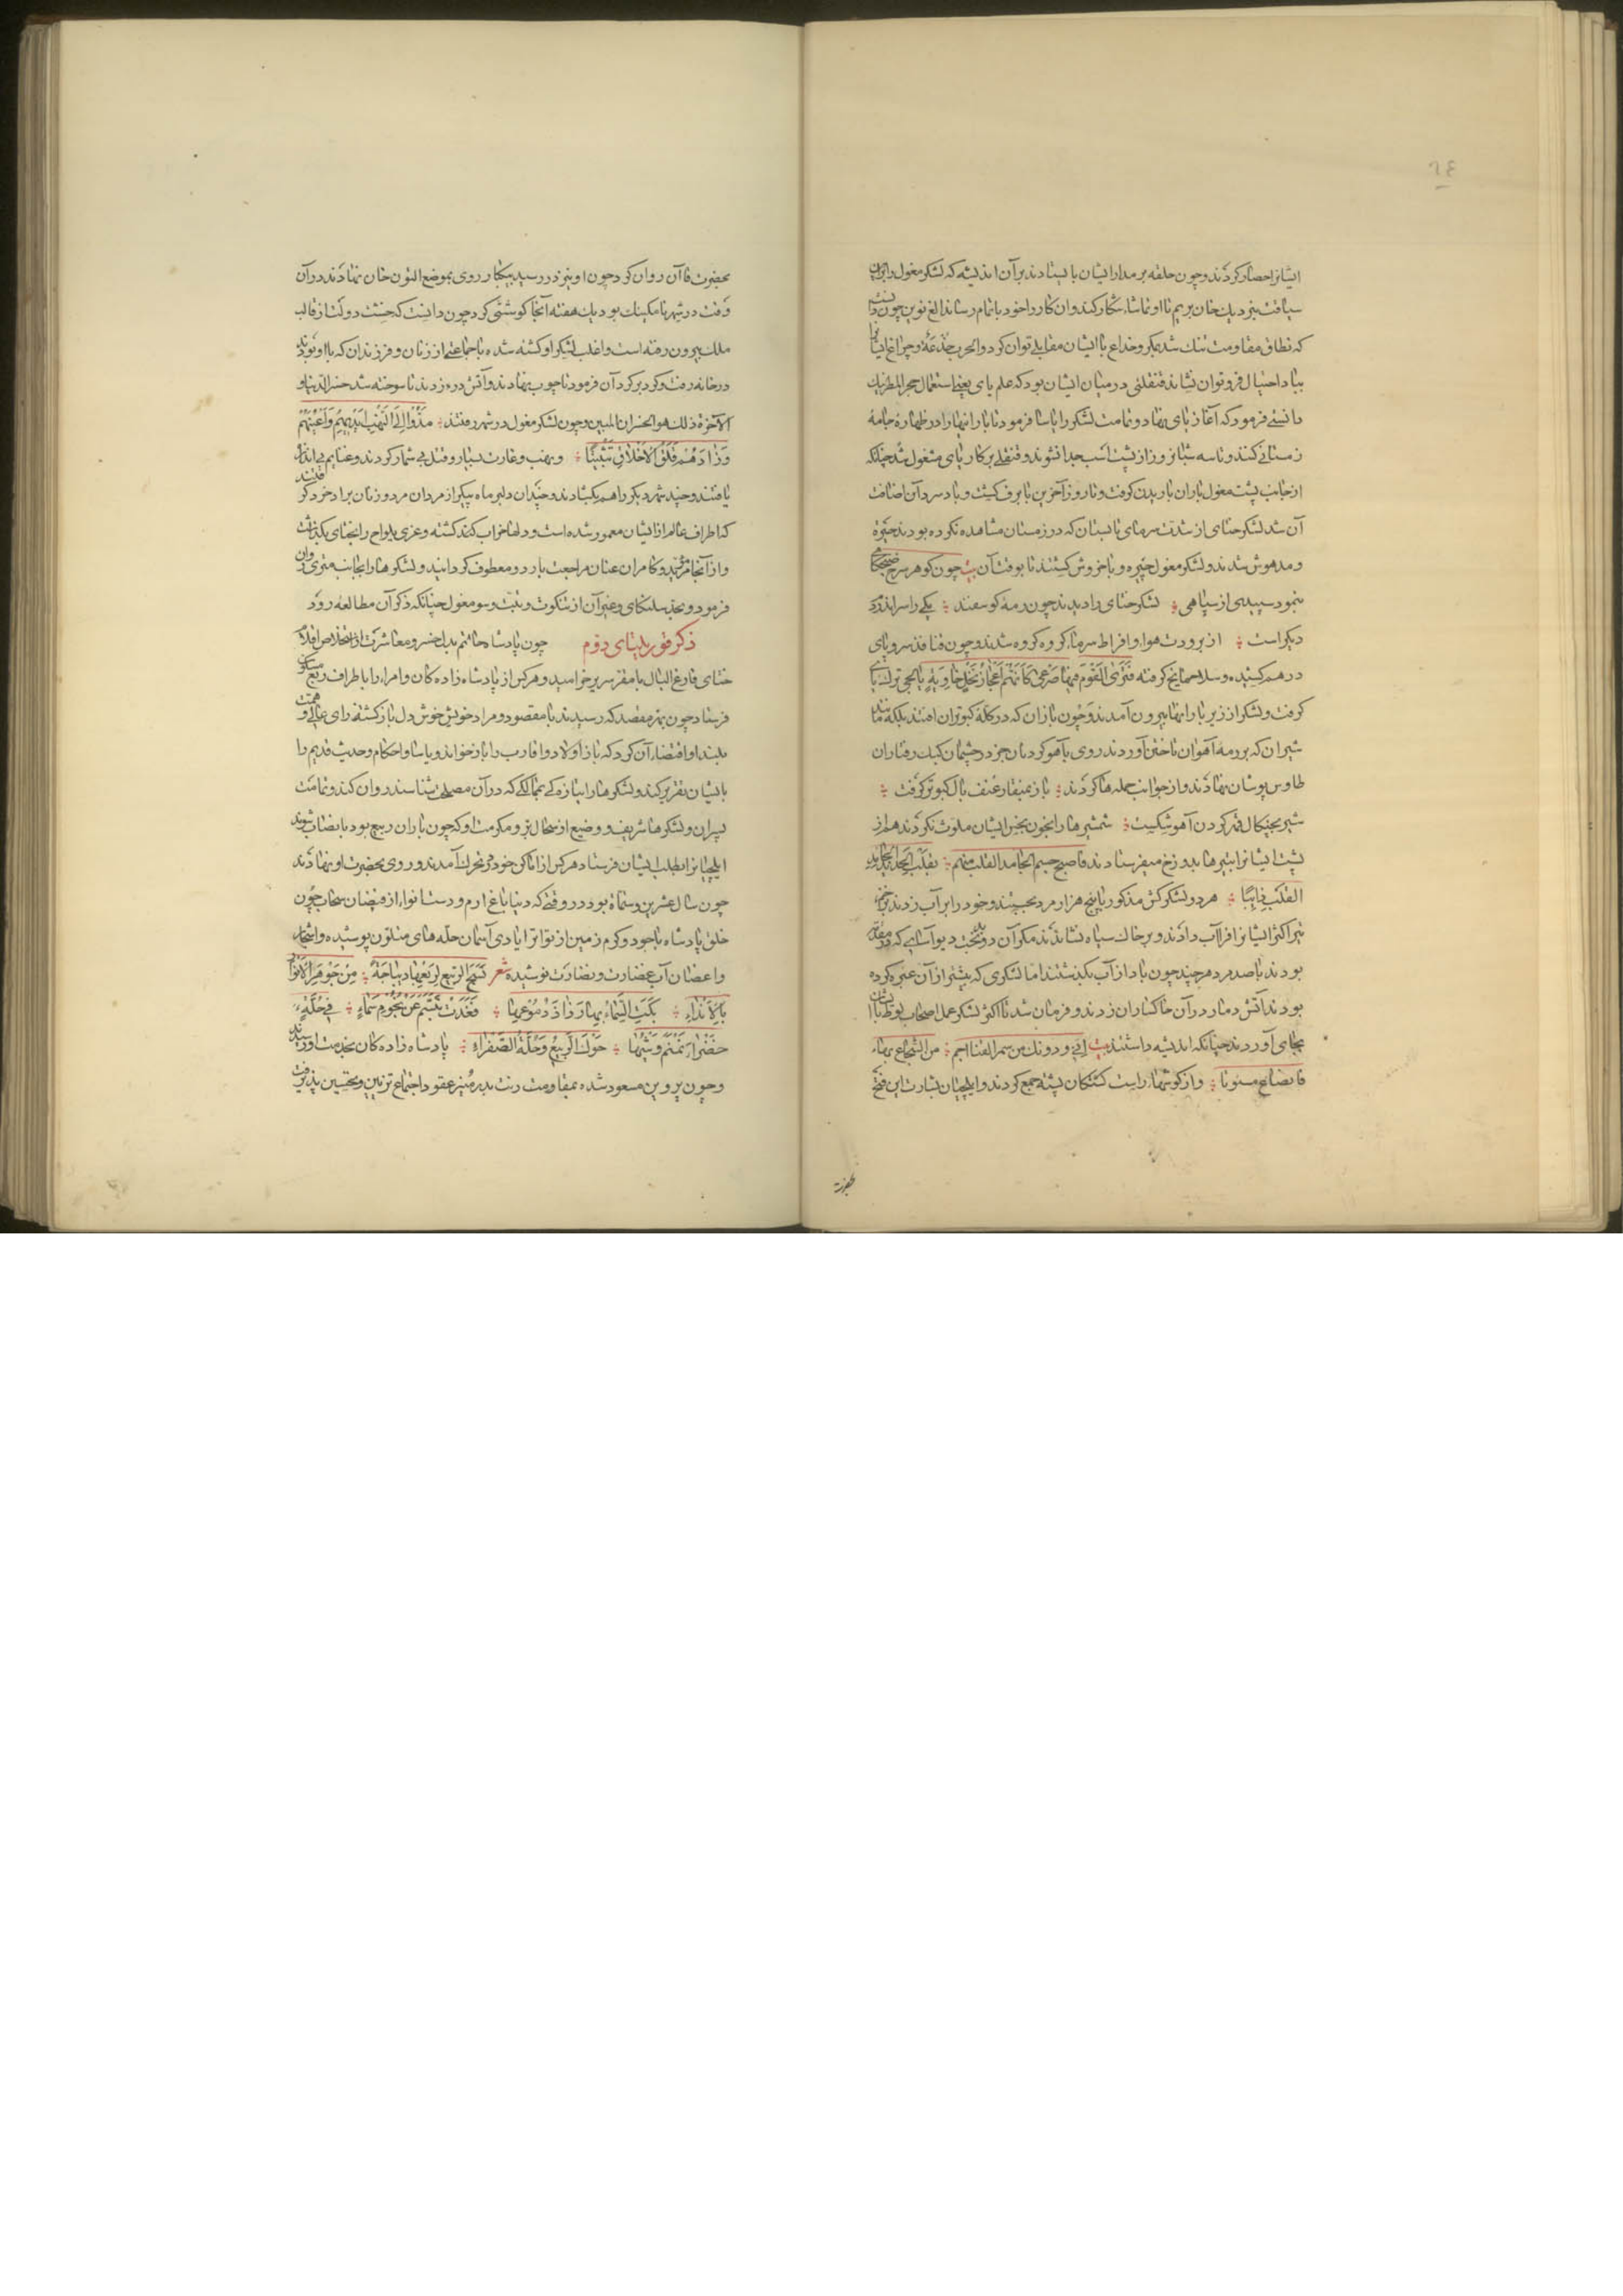 ٦٤
ایشانرا حصار کردند و چون حلقه بر مدار ایشان بایستادند بر آن اندیشه که لشکر مغول را بر آن
سیاقت بنزدیک خان بریم تا او تماشاء شکار کند و ان کار را خود باتمام رساند الغ نوین چون دانست
که نطاق مقاومت تنک شد بمکر و خداع با ایشان مقابلی توان کرد و الحرب خدعة و چراغ ایشانرا
بباد احتیال فرو توان نشاند قنقلئی در میان ایشان بود که علم یای یعنی استعمال حجر المطر نیک
دانستی فرمود که آغاز یای نهاد و تمامت لشکر را یاسا فرمود تا بارانیها را در ظهاره جامهٔ
زمستانی کنند و تا سه شبانروز از پشت اسب جدا نشوند و قنقلی بر کار یای مشغول شد چنانکه
از جانب پشت مغول باران باریدن گرفت و تا روز آخرین با برف گشت و باد سرد آن اضافت
آن شد لشکر ختای از شدت سرمای تابستان که در زمستان مشاهده نکرده بودند خیره
و مدهوش شدند و لشکر مغول چیره و با خروش کشتند تا بوقت آن بیت چون کوهر سرخ صبحگاهی
بنمود سپیدی از سیاهی لشکر ختای را دیدند چون رمه کوسفند یکی را سر اندر دم
دیکر است از برودت هوا و افراط سرما کروه کروه شدند و چون قنافذ سر و پای
در هم کشیده و سلاحها یخ گرفته فَتَرَی القَوْمَ فِیهَا صَرْعَی کَأَنَّهُمْ أَعْجَازُ نَخْلٍ خَاوِیَةٍ یایجی ترک یای
کرفت و لشکر از زیر بارانیها بیرون آمدند و چون بازان که در کلهٔ کبوتران افتند بلکه مانند
شیران که بر رمه آهوان تاختن آوردند روی بآهو کردنان جزر چشمان کبک رفتاران
طاوس پوشان نهادند و از جوانب حمله ها کردند باز بمنقار عنف بال کبوتر گرفت
شیر بچنکال قهر کردن آهو شکست شمشیرها را بخون نجس ایشان ملوث نکردند هم از
پشت ایشانرا بنیزها بدوزخ میفرستادند فاصبح جسم الجامد القلب منهم
القلب ذایبا هر دو لشکرکش مذکور با پنج هزار مرد بجستند و خود را بر آب زدند بزخم
تیر اکثر ایشانرا فرا آب دادند و بر خاک سیاه نشاندند مکر آن دو بدبخت دیوآسای که در مقدمه
بودند با صد مرد هر چند چون باد از آب بکذشتند اما لشکری که پیشتر از آن عبره کرده
بودند آتش دمار در آن خاکساران زدند و فرمان شد تا اکثر لشکر عمل اصحاب لوط با ایشان
بجای آوردند چنانکه اندیشه داشتند بیت من سمر القنا اجم من الشجاع بهاء
و از کوشهاء راست کشتکان پشته جمع کردند و ایلچیان بشارت این فتح
بحضرت
بحضرت قاآن روان کرد و چون او نیز در رسید بیکبار روی بموضع التون خان نهادند در آن
وقت در شهر نامکینک بود یک هفته آنجا کوششی کرد چون دانست که خشت دولت از قالب
ملک بیرون رفته است و اغلب لشکر او کشته شده با جماعتی از زنان و فرزندان که با او بودند
در خانه رفت و کرد بر کرد آن فرمود تا چوب نهادند و آتش در زدند تا سوخته شد خسر الدنیا و
الآخرة ذلک هو الخسران المبین و چون لشکر مغول در شهر رفتند مَدُّوا إِلَی النَّهْبِ أَیْدِیهِمْ وَأَعْیُنَهُمْ
وَزَادَهُمْ قَلَقُ الأَخْلاَقِ تَثْبِیتًا و نهب و غارت بسیار و قتل بی شمار کردند و غنایم بی اندازه
یافتند و چند شهر دیکر را هم بکشادند و چندان دلبر ماه پیکر از مردان مرد و زنان برادخرد کرفتند
که اطراف عالم از ایشان معمور شده است و دلها خراب کنند کشته و عزی یلواج را بختای بکذاشت
و از آنجا مؤید و کامران عنان مراجعت با اردو معطوف کردانید و لشکرها را بجانب منزی روان
فرمود و بحد سلنکای و غیر آن از تنکوت و تبت و سومغول چنانکه ذکر آن مطالعه رود
ذکر قوریلتای دوم چون پادشاه حاتم بذل خسرو معاشرت از استخلاص اقلیم
ختای فارغ البال با مقر سریر خرامید و هرکس از پادشاه زادکان و امراء را با طراف ربع مسکون
فرستاد چون بهر مقصد که رسیدند با مقصود و مراد خویش خوش دل باز کشتند رای عالی و همت
بلند او اقتضاء آن کرد که باز اولاد و اقارب را باز خواند و یاسا و احکام و حدیث قدیم را
با ایشان تقریر کند و لشکرها را باز بممالکی که در آن مصلحت شناسند روان کند و تمامت
پسران و لشکرها شریف و وضیع از سجال بر و مکرمت او که چون باران ربیع بود با نصاب شوند
ایلچیانرا بطلب ایشان فرستاد هر کس از اماکن خود در تحرک آمدند و روی بحضرت او نهادند
چون سال عشرین و ستمایه بود در وقتی که دنیا باغ ارم و دست انواء از فیضان سحاب چون
خلق پادشاه با جود و کرم زمین از تواتر ایادی آسمان حله های متلون پوشیده و اشجار
و اغصان آب غضارت و نضارت نوشیده شعر نَسَجَ الرَّبِیعُ لِرَبْعِهَا دِیبَاجَةً مِنْ جَوْهَرِ الأَنْوَارِ
بِالأَنْدَاءِ بَکَتِ السَّمَاءُ بِهَا رَذَاذَ دُمُوعِهَا فَغَدَتْ تَبَسَّمُ عَنْ نُجُومِ سَمَاءٍ فِی حُلَّةٍ
خَضْرَاءَ نَمْنَمَ وَشْیَهَا حَوْکُ الرَّبِیعِ وَحُلَّةٍ صَفْرَاءِ پادشاه زادکان بخدمت او رسیدند
و چون پروین مسعود شده بمقاومت رتبت بدر منیر عقود اجتماع تزیین و تحسین پذیرفت